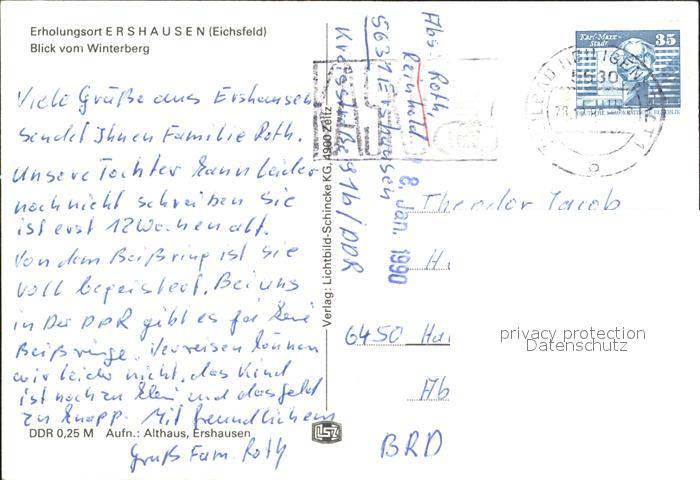 Erholungsort ERSHAUSEN (Eichsfeld)
Blick vom Winterberg
Viele Grüße aus Ershausen
sendet Ihnen Familie Roth.
Unsere Tochter kann leider
noch nicht schreiben Sie
ist erst 12 Wochen alt.
Von dem Beißring ist Sie
voll begeistert. Bei uns
in Der DDR gibt es gar keine
Beißringe. Verreisen können
wir leider nicht, das Kind
ist noch zu klein und das Geld
zu knapp. Mit freundlichem
Gruß Fam. Roth
DDR 0,25 M Aufn.: Althaus, Ershausen
Verlag: Lichtbild-Schincke KG, 4900 Zeitz
Abs: Roth,
Reinhold
5631 Ershausen
Kreisstraße 91b/DDR
8. Jan. 1990
Karl-Marx-
Stadt
35
5630
Theodor Jacob
H
6450 Ha
Ab
BRD
privacy protection
Datenschutz